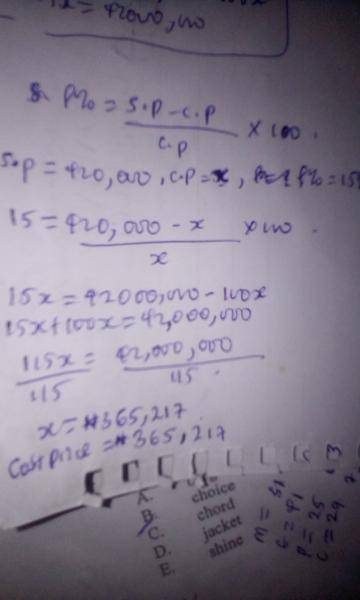 x = 42000,000
P% = S.P - C.P / C.P × 100.
S.P = 420,000, C.P = x, P% = 15
15 = 420,000 - x / x × 100.
15x = 42000,000 - 100x
15x + 100x = 42,000,000
115x / 115 = 42,000,000 / 115.
x = ₦365,217.
Cost price = ₦365,217
A. choice
B. chord
C. jacket
D. shine
E.
m = 51
c = 41
P = 25
C = 29